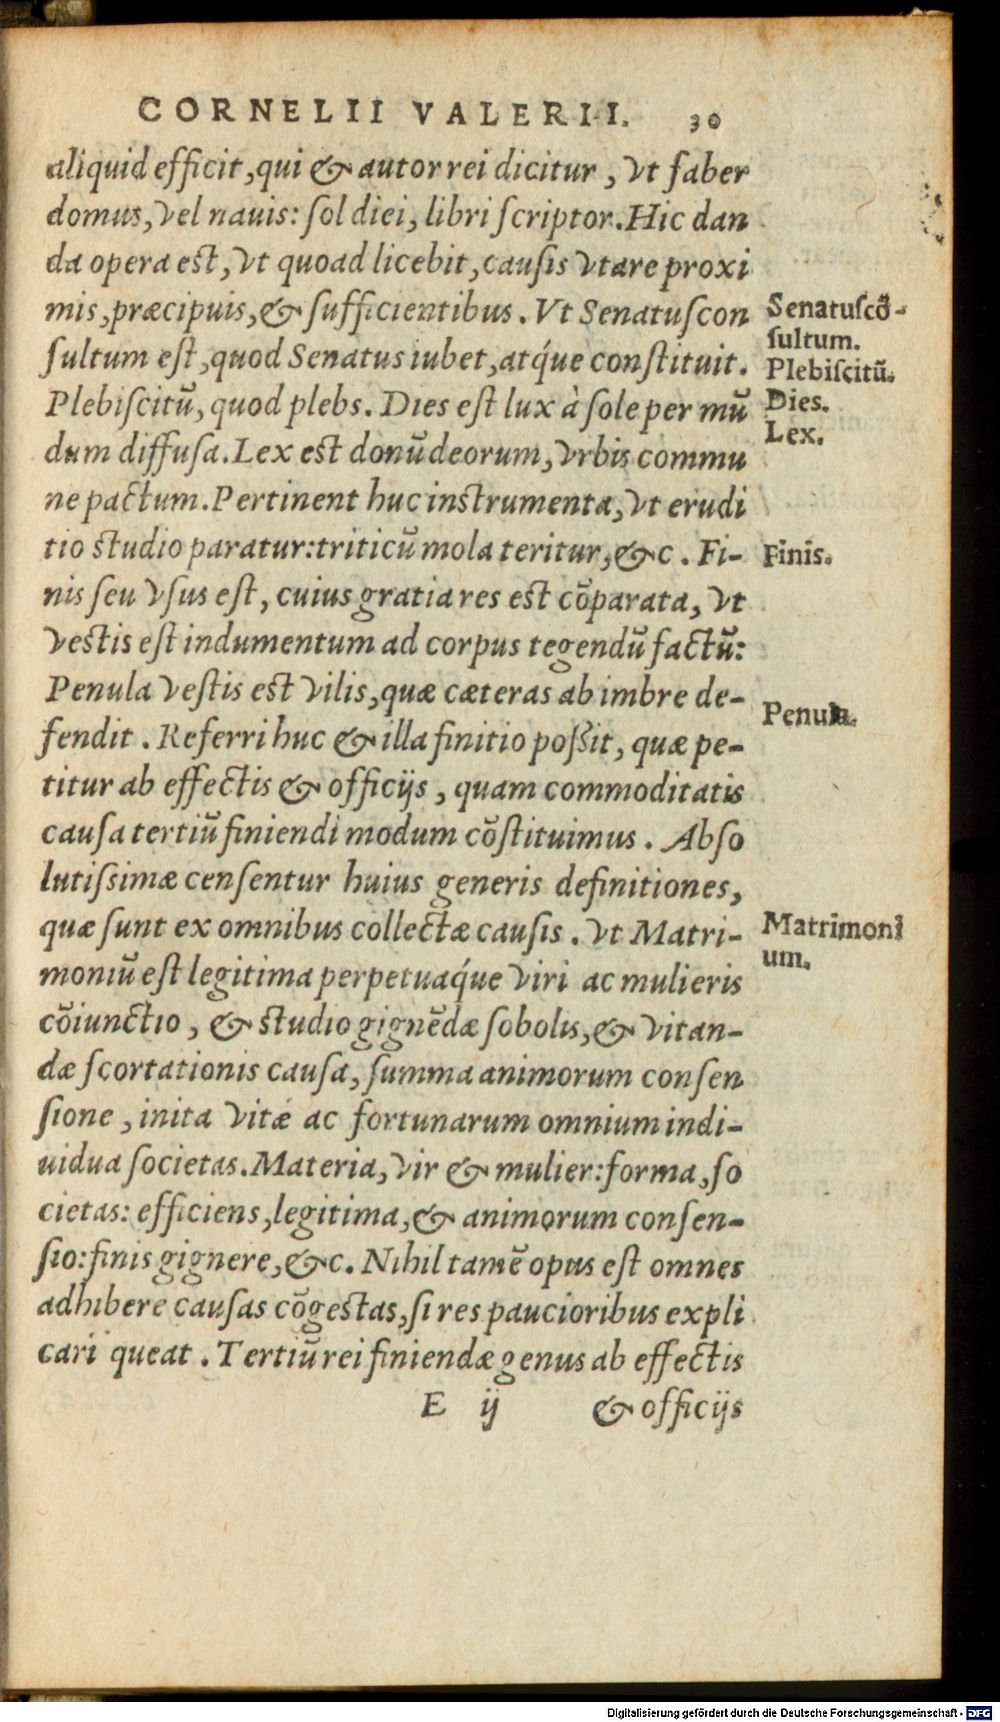 CORNELII VALERII. 30
aliquid efficit, qui & autor rei dicitur, vt faber
domus, vel nauis: sol diei, libri scriptor. Hic dan
da opera est, vt quoad licebit, causis vtare proxi
mis, præcipuis, & sufficientibus. Vt Senatuscon
Senatuscõ-
sultum est, quod Senatus iubet, atq́ue constituit.
sultum.
Plebiscitū, quod plebs. Dies est lux à sole per mū
Plebiscitū.
Dies.
dum diffusa. Lex est donū deorum, vrbis commu
Lex.
ne pactum. Pertinent huc instrumenta, vt erudi
tio studio paratur: triticū mola teritur, &c. Fi-
Finis.
nis seu vsus est, cuius gratia res est cõparata, vt
vestis est indumentum ad corpus tegendū factū:
Penula vestis est vilis, quæ cæteras ab imbre de-
Penula.
fendit. Referri huc & illa finitio possit, quæ pe-
titur ab effectis & officijs, quam commoditatis
causa tertiū finiendi modum cõstituimus. Abso
lutissimæ censentur huius generis definitiones,
quæ sunt ex omnibus collectæ causis. vt Matri-
Matrimoni
um.
moniū est legitima perpetuaq́ue viri ac mulieris
cõiunctio, & studio gignẽdæ sobolis, & vitan-
dæ scortationis causa, summa animorum consen
sione, inita vitæ ac fortunarum omnium indi-
uidua societas. Materia, vir & mulier: forma, so
cietas: efficiens, legitima, & animorum consen-
sio: finis gignere, &c. Nihil tamẽ opus est omnes
adhibere causas cõgestas, si res paucioribus expli
cari queat. Tertiū rei finiendæ genus ab effectis
E ij & officijs
Digitalisierung gefördert durch die Deutsche Forschungsgemeinschaft - DFG